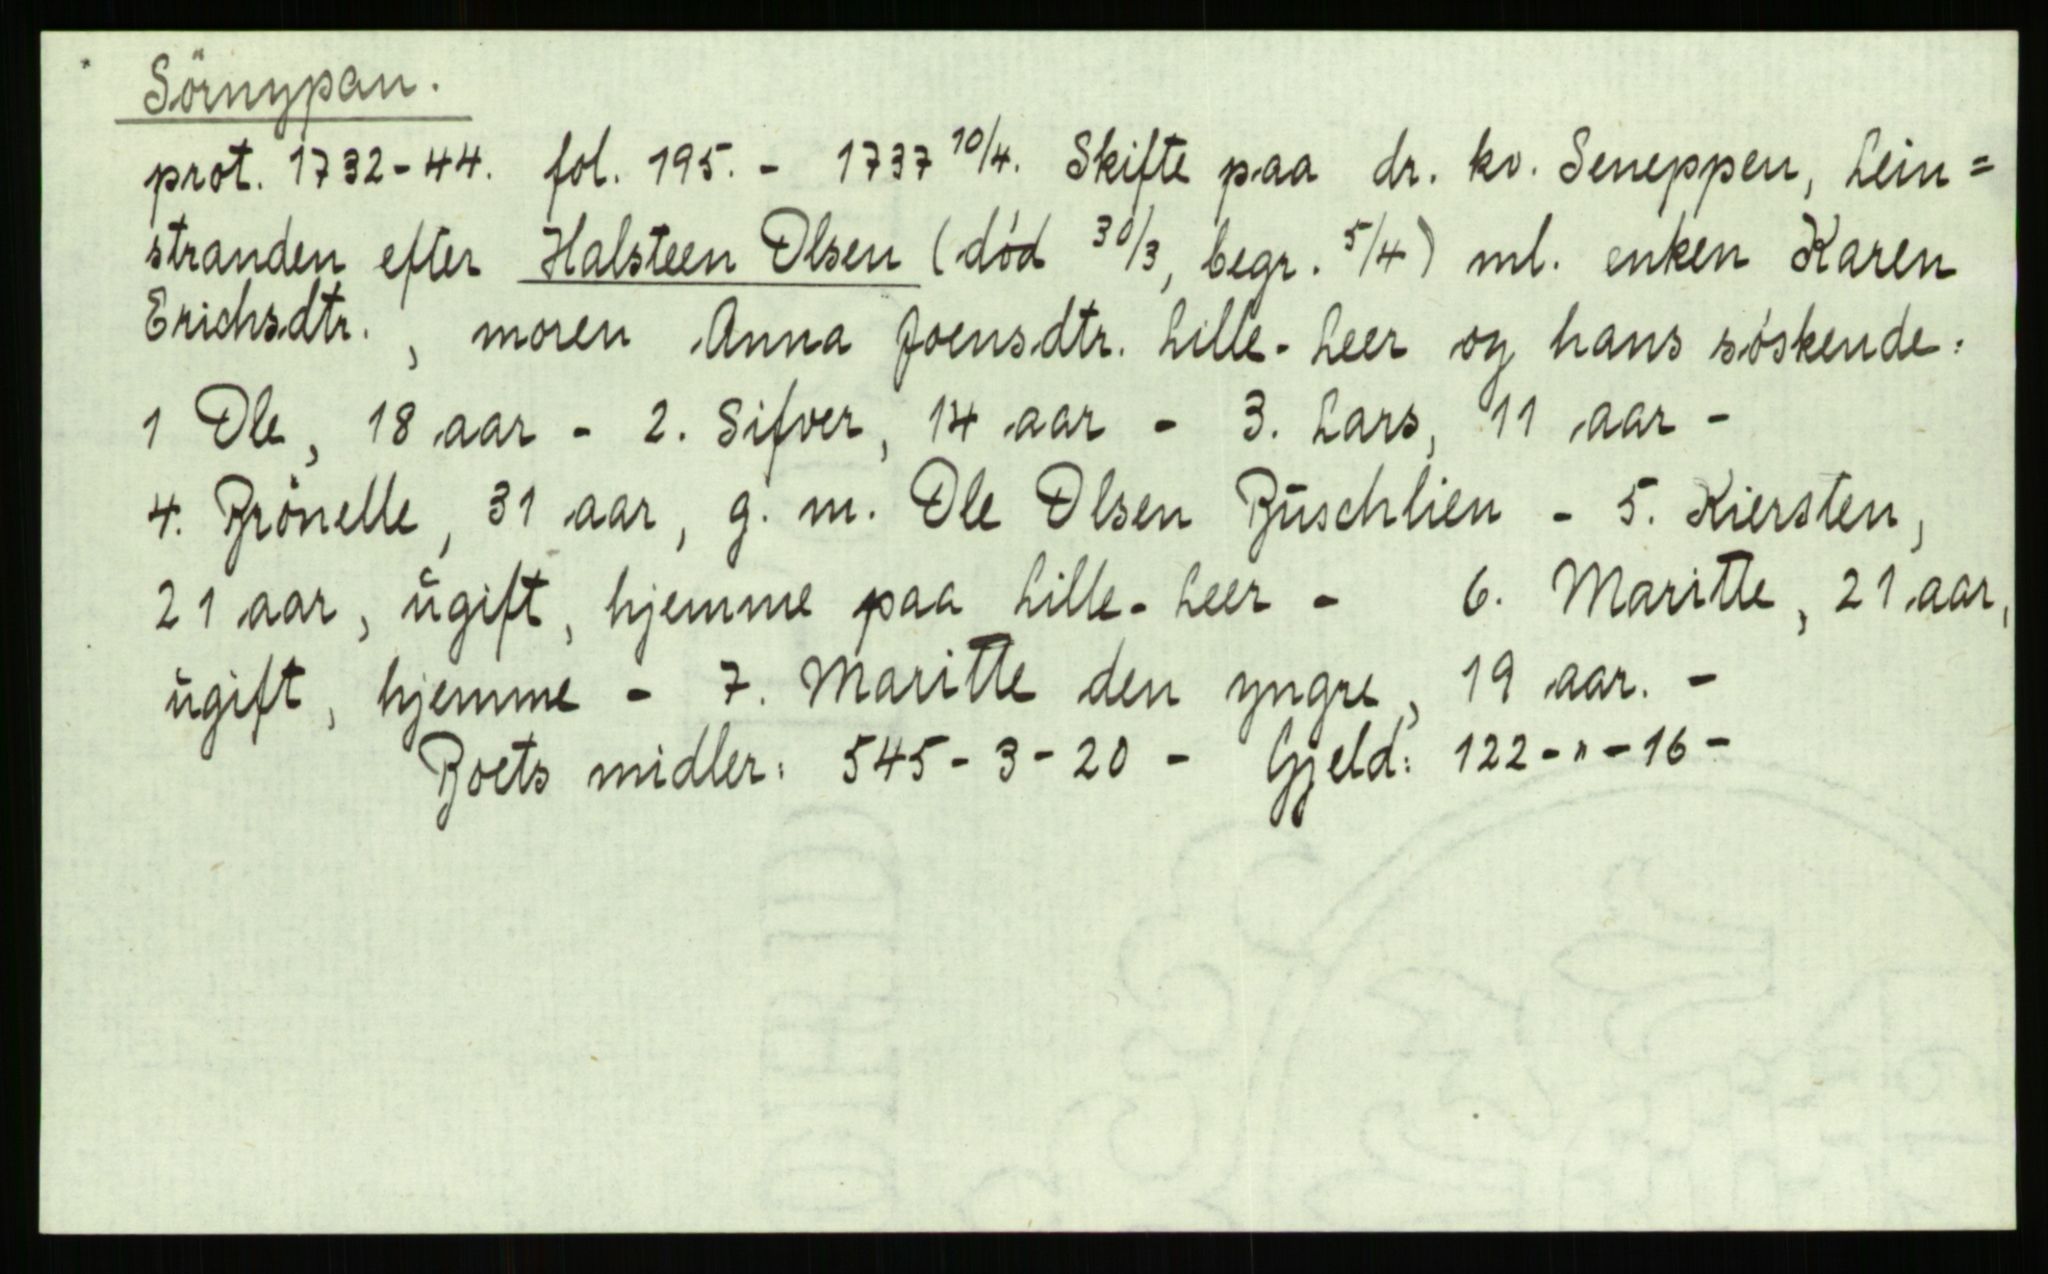 Sörnypan.
prot. 1732-44. fol. 195. - 1737 10/4. Skifte paa dr. kv. Seneppen, Lein=
stranden efter Halsteen Olsen (død 30/3, begr. 5/4) ml. enken Karen
Erichsdtr., moren Anna Joensdtr. Lille-Leer og hans søskende:
1 Ole, 18 aar - 2. Sifver, 14 aar - 3. Lars, 11 aar -
4. Brönelle, 31 aar, g. m. Ole Olsen Buschlien - 5. Kiersten,
21 aar, ugift, hjemme paa Lille-Leer - 6. Maritte, 21 aar,
ugift, hjemme - 7. Maritte den yngre, 19 aar. -
Boets midler: 545-3-20 - Gjeld: 122-"-16-